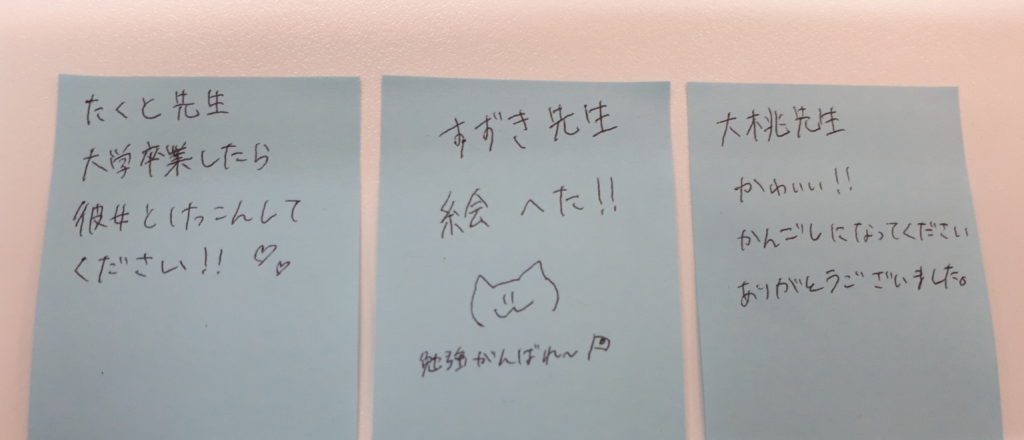 たくと先生
大学卒業したら
彼女とけっこんして
ください!! ♡♡
すずき先生
絵 へた!!
勉強がんばれ〜
大桃先生
かわいい!!
かんごしになってください
ありがとうございました。